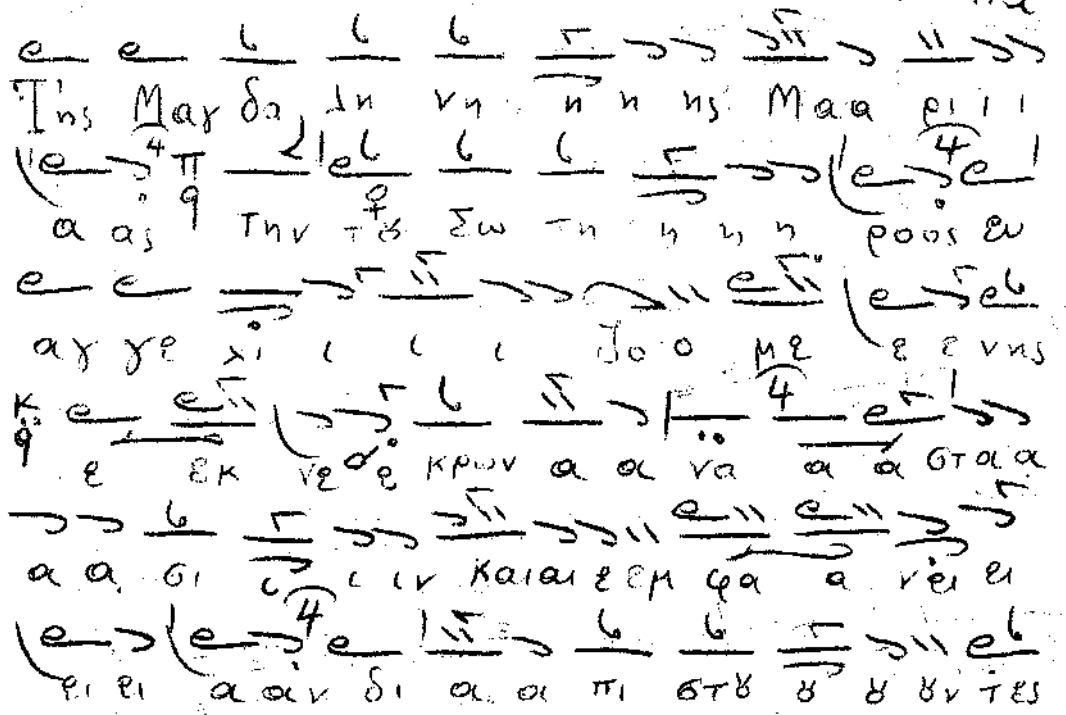 Της Μαγ δα λη νη η η ης Μαα ρι ι ι
α ας την τȣ Σω τη η η η ροος ευ
αγ γε λι ι ι ι ζο ο με ε ε νης
ε εκ νε ε κρων α α να α α στα α
α α σι ι ι ιν Και αι ε εμ φα α νει ει
ει ει α αν δι α α πι στȣ ȣ ȣ ȣν τες